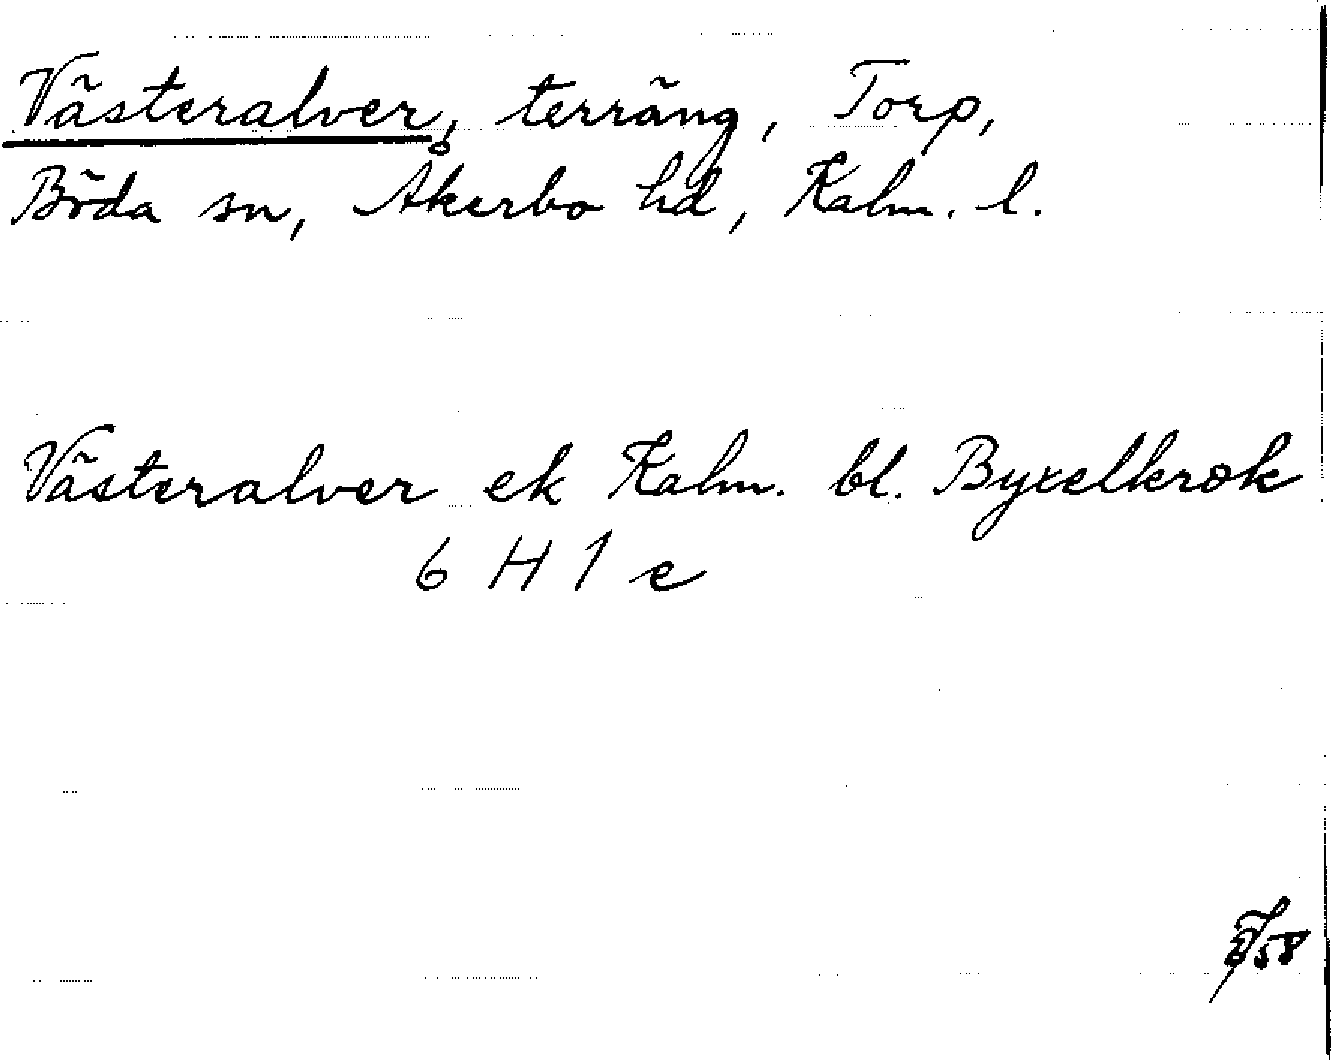 Västeralver, terräng, Torp,
Böda sn, Åkerbo hd, Kalm. l.
Västeralver ek Kalm. bl. Byxelkrok
6 H 1 e
58